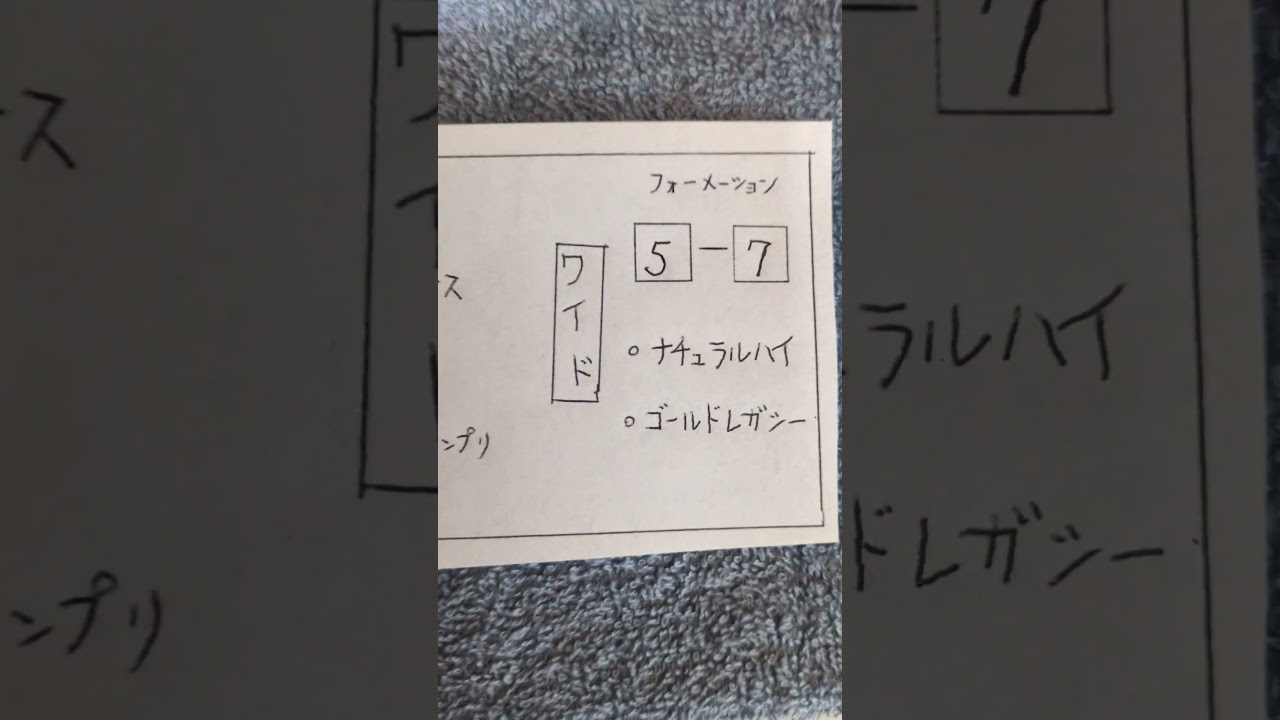 フォーメーション
5 - 7
ワイド
ス
○ ナチュラルハイ
○ ゴールドレガシー
ンプリ